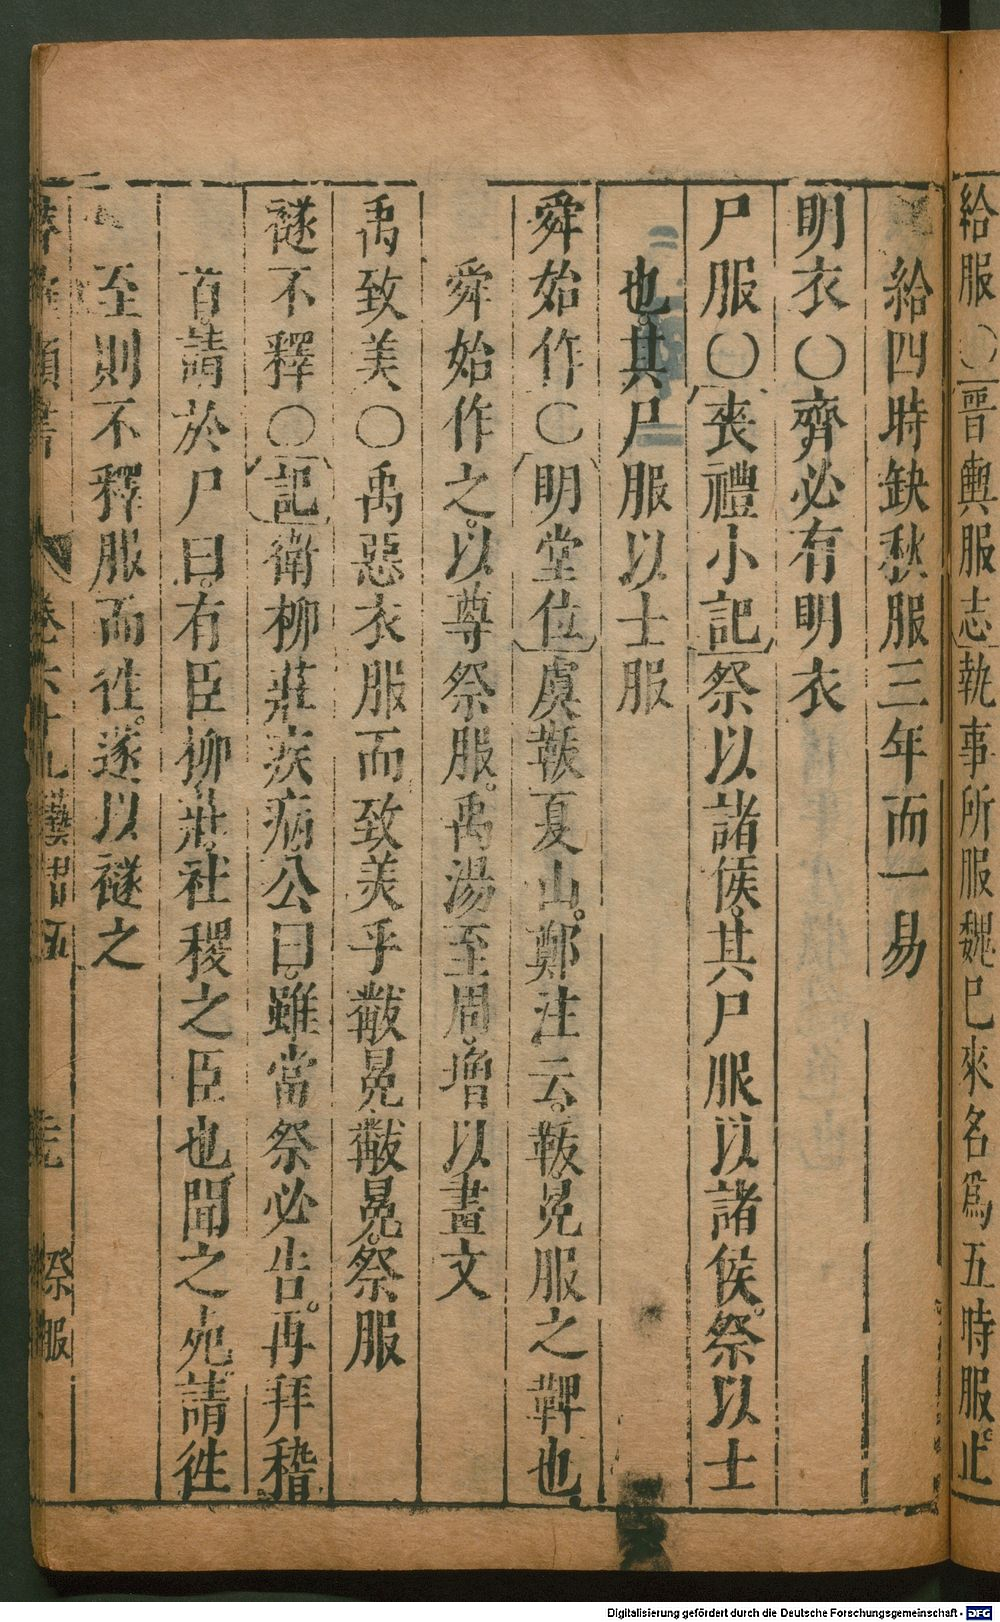 給服〇晉輿服志執事所服魏已來名爲五時服。止
給四時缺秋服三年而一易
明衣〇齊必有明衣
尸服〇喪禮小記祭以諸侯。其尸服以諸侯。祭以士
也。其尸服以士服
舜始作〇明堂位虞韍夏山。鄭注云。韍。冕服之鞸也
舜始作之。以尊祭服。禹湯至周。增以畫文
禹致美〇禹惡衣服而致美乎黻冕黻冕。祭服
襚不釋〇記衛柳莊疾病。公曰。雖當祭必告。再拜稽
首。請於尸曰。有臣柳莊。社稷之臣也聞之死。請徃
至則不釋服而徃。遂以襚之
類書 卷六十九 祭服
Digitalisierung gefördert durch die Deutsche Forschungsgemeinschaft - DFG